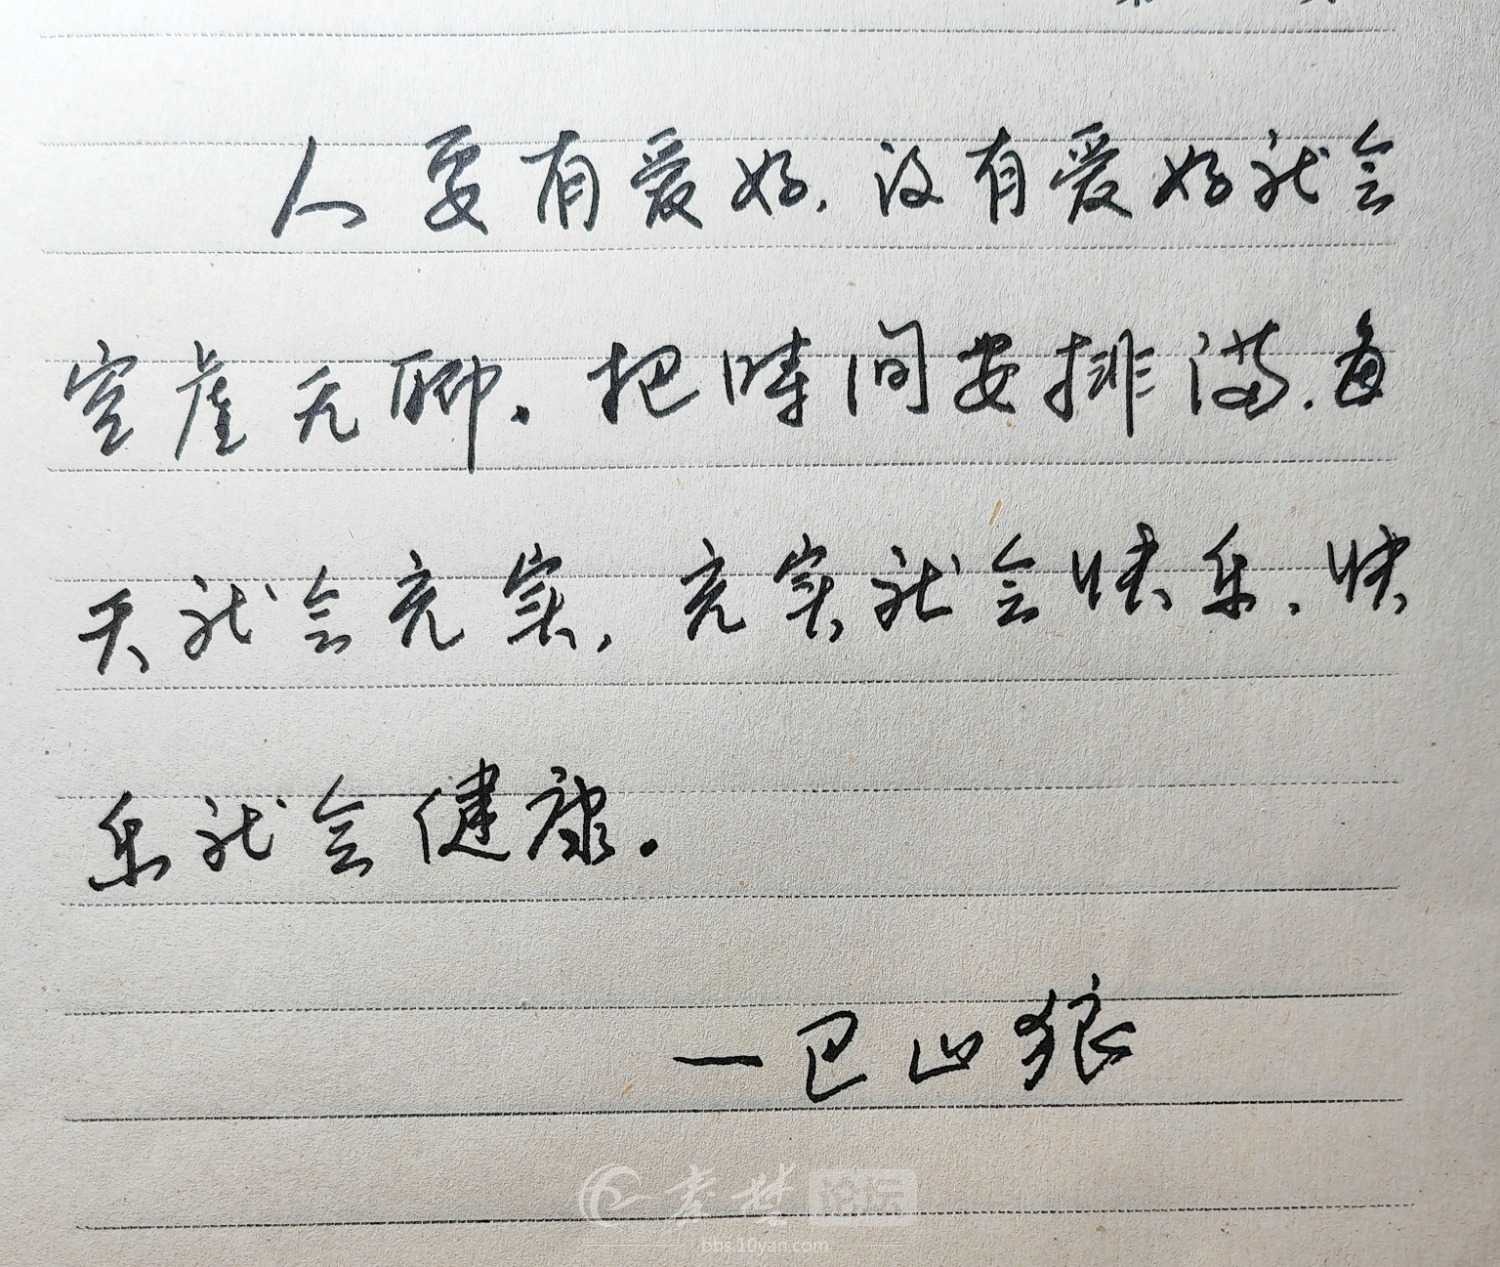 人要有爱好，没有爱好就会
空虚无聊。把时间安排满，每
天就会充实，充实就会快乐，快
乐就会健康。
—巴山狼
秦楚论坛
bbs.10yan.com